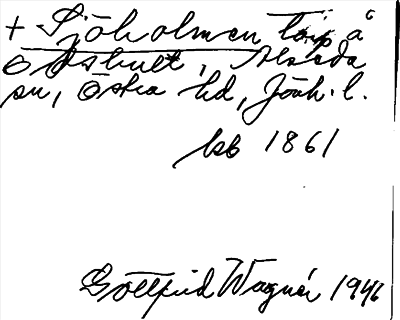 + Sjöholmen, torp å
Opshult, Alseda
sn, Östra hd, Jönk. l.
kb 1861
Gottfrid Wagnér 1946